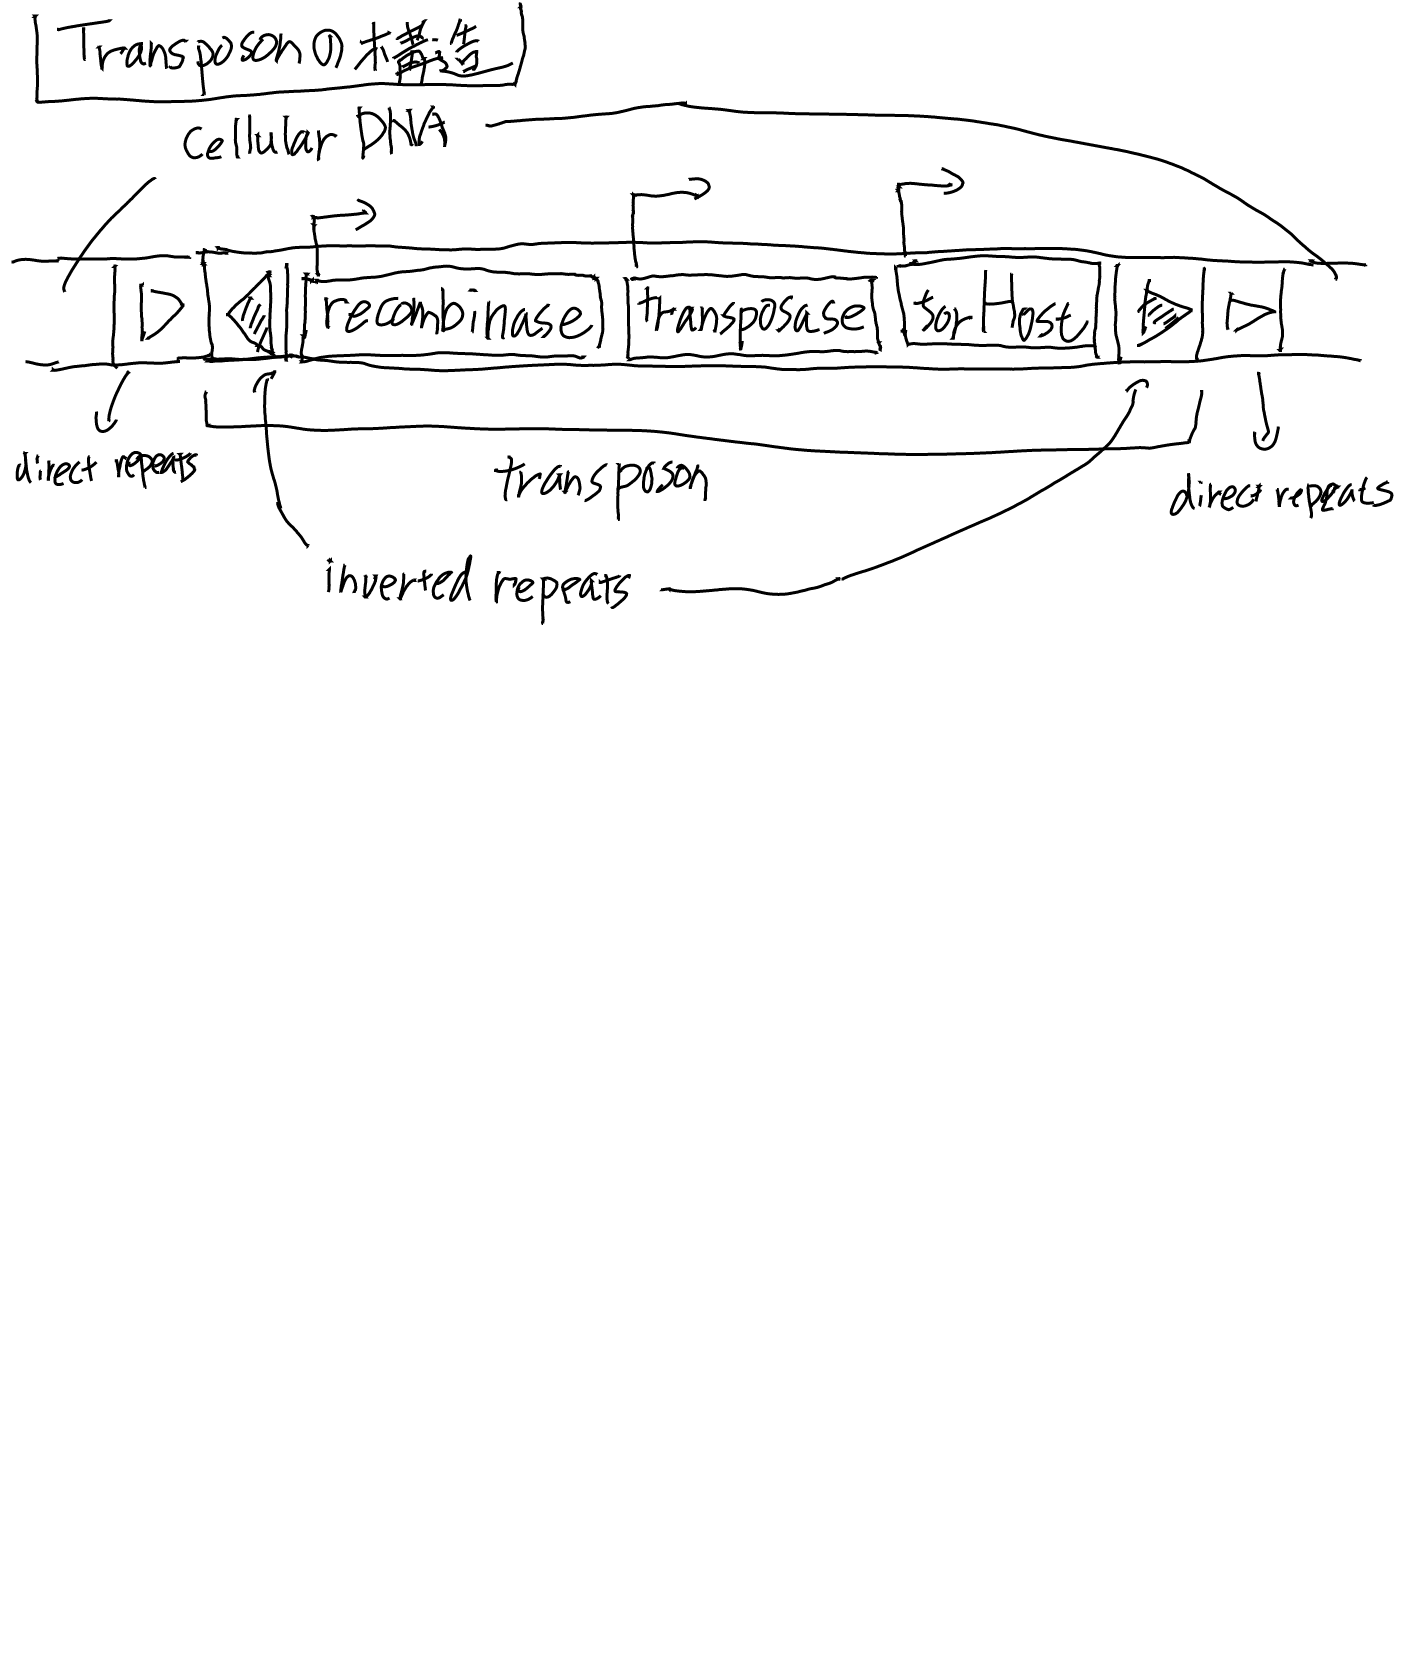 Transposonの構造
cellular DNA
recombinase transposase for Host
direct repeats transposon direct repeats
inverted repeats